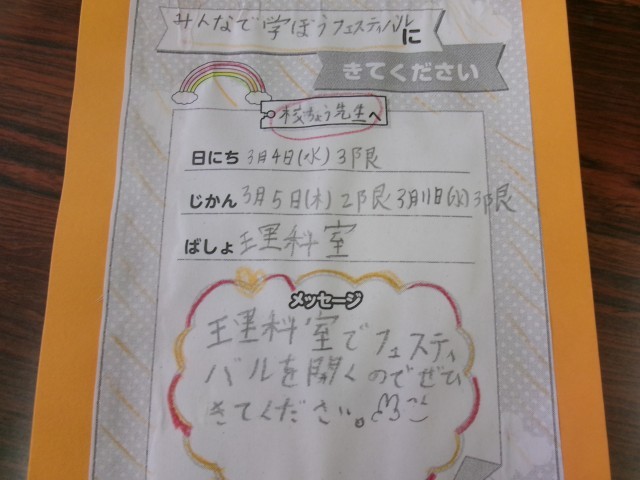 みんなで学ぼうフェスティバルに
きてください
校ちょう先生へ
日にち 3月4日(水) 3限
じかん 3月5日(木) 2限 3月11日(水) 3限
ばしょ 理科室
メッセージ
理科室でフェスティ
バルを開くのでぜひ
きてください。